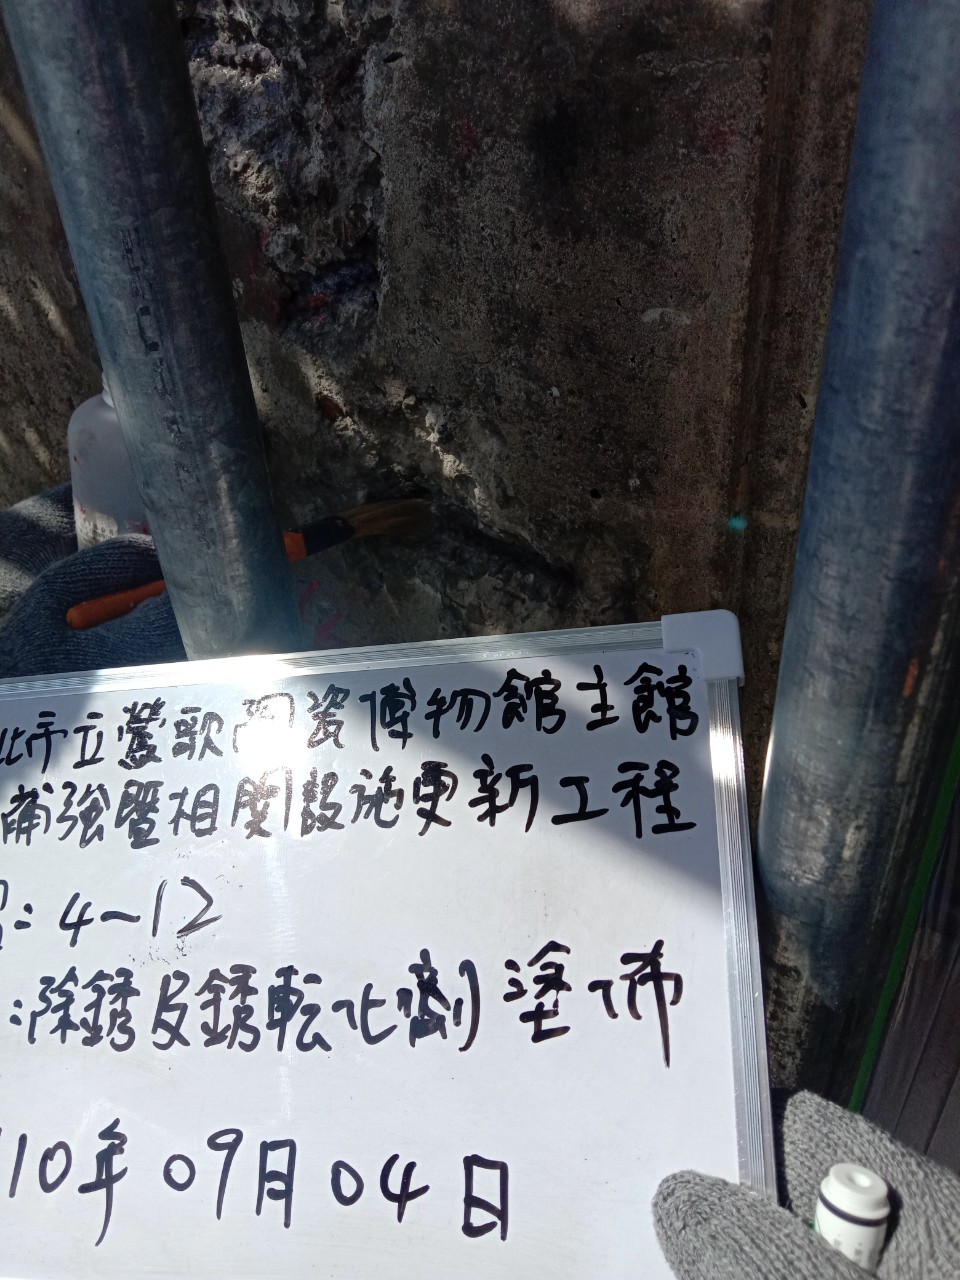 北市立鶯歌陶瓷博物館主館
補強暨相關設施更新工程
: 4~12
:除銹及銹転化劑塗佈
110年09月04日